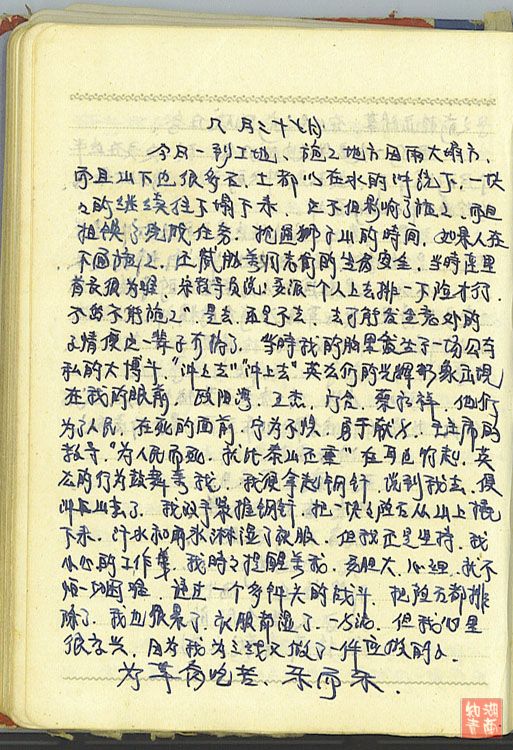 八月二十七日
今日一到工地、施工地方因雨大塌方,
而且山下边很多石、土都以在水的冲洗下,一块
々的继续往下塌下来,这不但影响了施工,而且
担误了完成任务,打通狮子山的时间,如果人在
下面施工,还威胁着同志们的生命安全,当时连里
首长很为难,宋教导员说:要派个人上去排一下险才行.
不要不能施工"是去,还是不去,去可能发生意外的
事情便之一辈子可怜了.当时我的脑里发生了一场公与
私的大博斗,"冲上去""冲上去"英雄们的光辉形象出现
在我的眼前,欧阳海、王杰、蔡永祥,他们
为了人民,在死的面前,宁为不快,勇于献身,毛主席的
教导,"为人民而死,就比泰山还重"在耳边响起,英
雄的行为鼓舞着我,我便拿起钢钎,说到我去,便
冲上山去了.我双手紧握钢钎,把一块々险石从山上橇
下来,汗水和雨水淋湿了衣服,但我还是坚持,我
小心的工作着,我时々提醒着我,要胆大,心细,我不
怕一切困难,通过一个多钟头的战斗,把险石都排
除了,我也很累了,衣服都湿了,但我心里
很高兴,因为我为三线又做了一件应做的
为革命吃苦,乐而乐.
湖南
知青